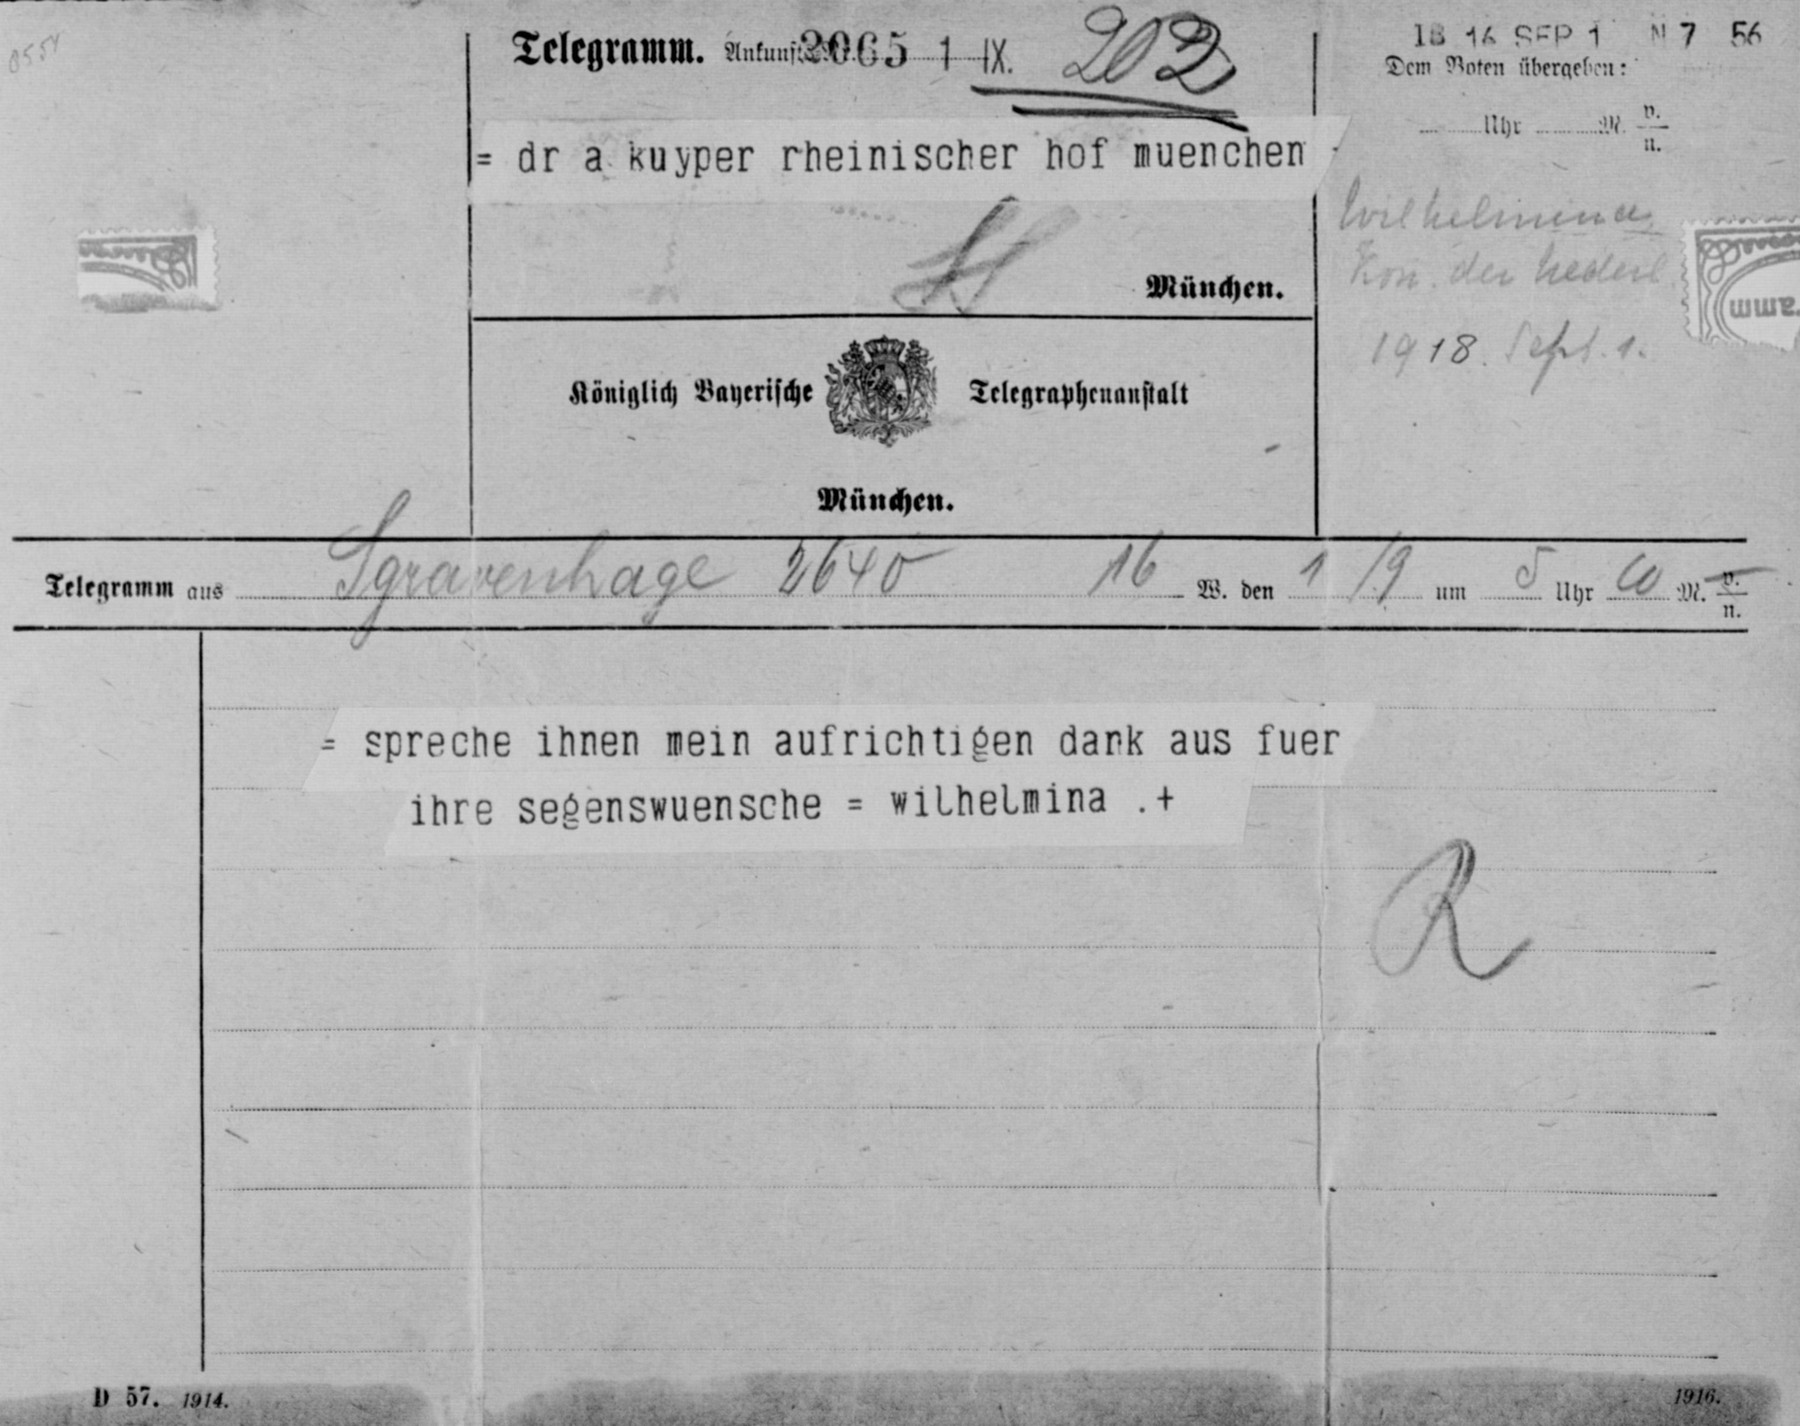 Telegramm. 2065 1 IX. 202
= dr a kuyper rheinischer hof muenchen
München.
Königlich Bayerische Telegraphenanstalt
München.
SEP 1 N 7 56
Dem Boten übergeben:
Uhr M. v. n.
Wilhelmina
Kon. der Nederl
1918. Sept. 1.
Telegramm aus Sgravenhage 2640 16 W. den 1/9 um 5 Uhr M. v. n.
= spreche ihnen mein aufrichtigen dank aus fuer
ihre segenswuensche = wilhelmina .+
R
D 57. 1914.
1916.